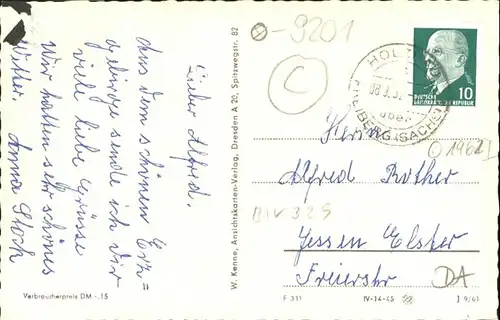 Lieber Alfred.
Aus dem schönen Erz=
gebirge sende ich Dir
viele liebe Grüsse
Wir hatten sehr schönes
Wetter. Anna Stock
Verbraucherpreis DM -.15
W. Kenne, Ansichtskarten-Verlag, Dresden A 20, Spitzwegstr. 82
-9201
C
HOL
08.3.62
über
FREIBERG (SACHS)
DEUTSCHE
DEMOKRATISCHE REPUBLIK
10
1962
Herrn
Alfred Rother
BIV 325
Jessen Elster
Freierstr
DA
F 331
IV-14-45
J 9/61